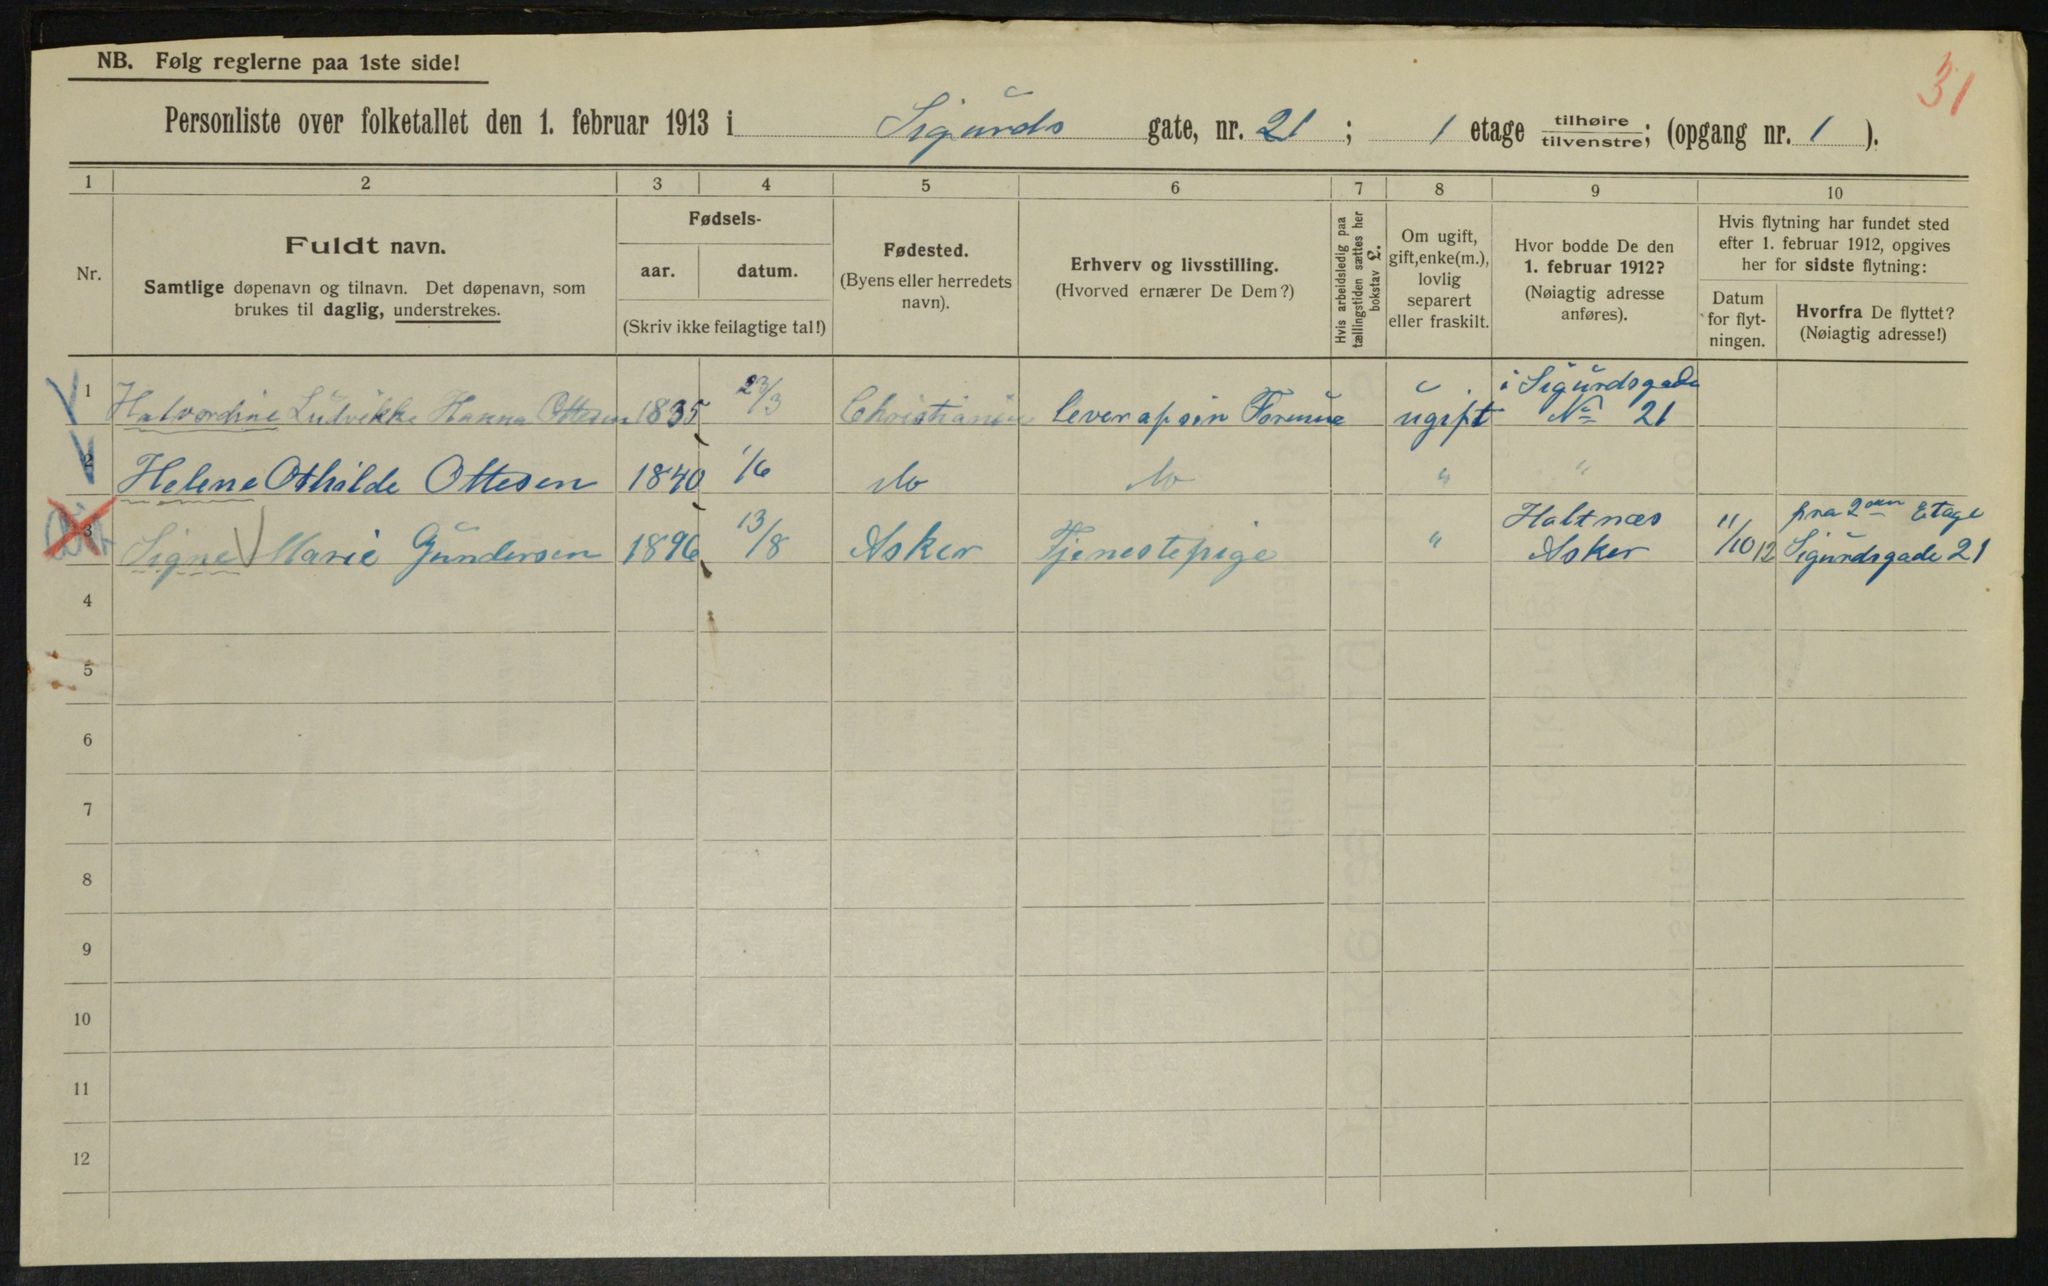 NB. Følg reglerne paa 1ste side!
31
Personliste over folketallet den 1. februar 1913 i Sigurds gate, nr. 21; 1 etage tilhøire/tilvenstre; (opgang nr. 1).
1 2 3 4 5 6 7 8 9 10
Nr.
Fuldt navn.
Samtlige døpenavn og tilnavn. Det døpenavn, som
brukes til daglig, understrekes.
Fødsels-
aar. datum.
(Skriv ikke feilagtige tal!)
Fødested.
(Byens eller herredets
navn).
Erhverv og livsstilling.
(Hvorved ernærer De Dem?)
Hvis arbeidsledig paa
tællingstiden sættes her
bokstav L.
Om ugift,
gift, enke(m.),
lovlig
separert
eller fraskilt.
Hvor bodde De den
1. februar 1912?
(Nøiagtig adresse
anføres).
Hvis flytning har fundet sted
efter 1. februar 1912, opgives
her for sidste flytning:
Datum
for flyt-
ningen.
Hvorfra De flyttet?
(Nøiagtig adresse!)
1 Halvordine Ludvikke Hanna Ottesen 1835 23/3 Christiania Lever af sin Formue ugift i Sigurdsgade
No 21
2 Helene Othilde Ottesen 1840 1/6 do do " "
3 Signe Marie Gundersen 1896 13/8 Asker Tjenestepige " Haltnæs
Asker 11/10 12 fra 2den Etage
Sigurdsgade 21
4
5
6
7
8
9
10
11
12